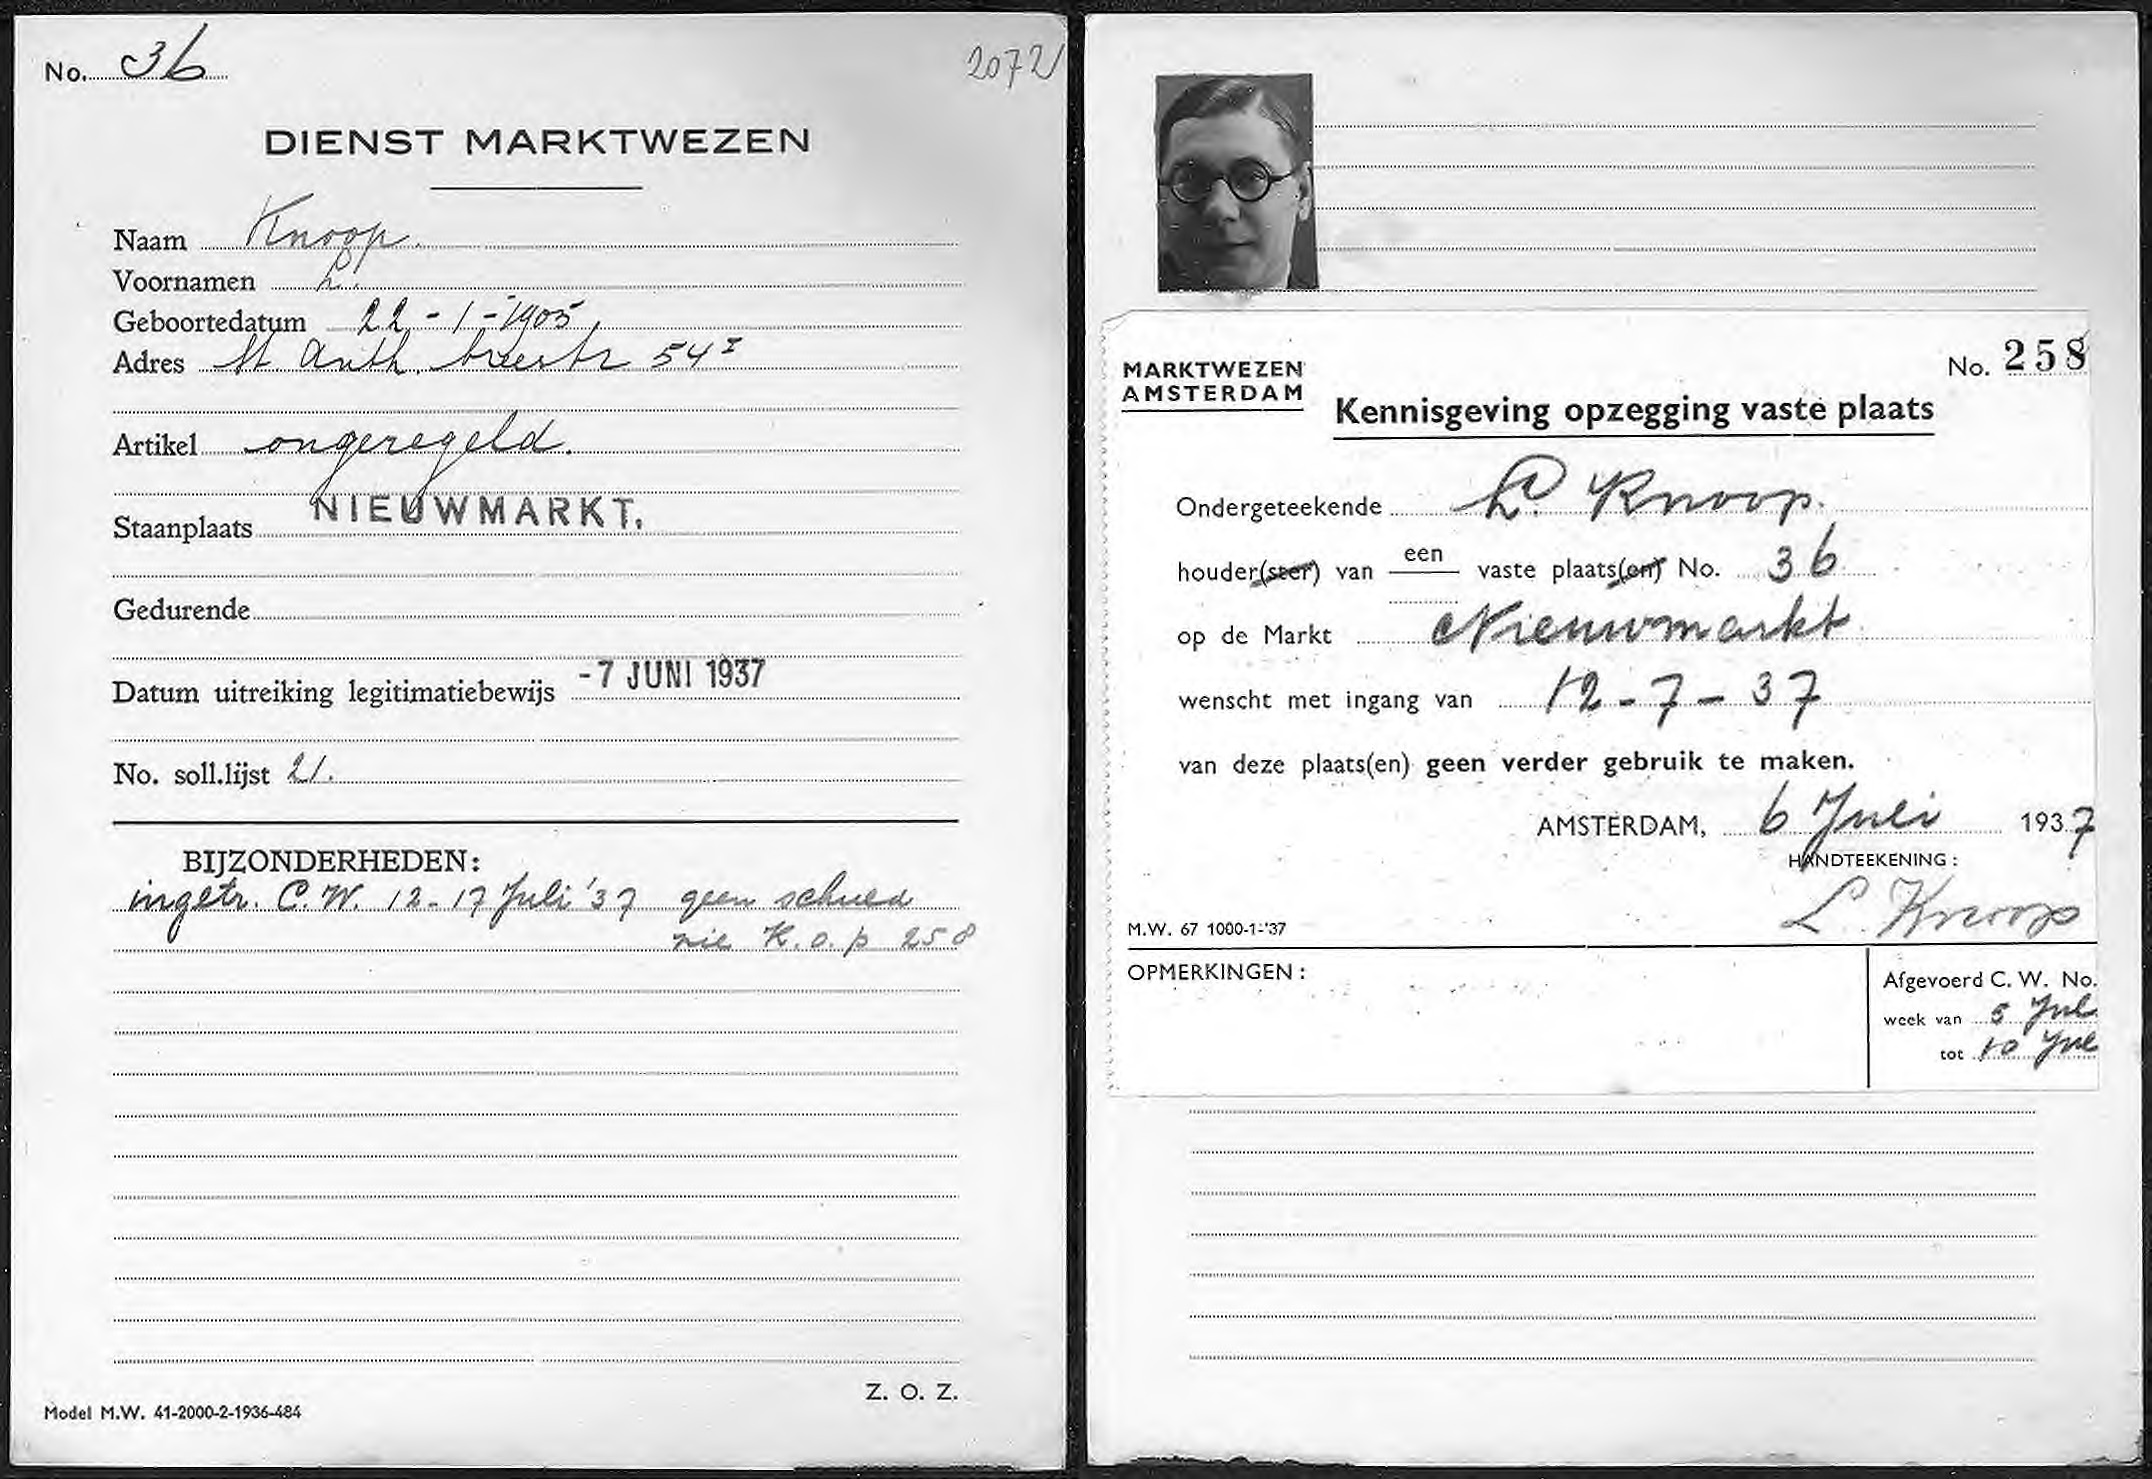 No. 36
2072
DIENST MARKTWEZEN
Naam Knoop.
Voornamen L.
Geboortedatum 22-1-1905
Adres St. Anth. breestr 54 I
Artikel ongeregeld.
Staanplaats NIEUWMARKT.
Gedurende
Datum uitreiking legitimatiebewijs -7 JUNI 1937
No. soll.lijst 21.
BIJZONDERHEDEN:
ingetr. C.W. 12-17 Juli '37 geen schuld
zie K.o.p 258
Z. O. Z.
Model M.W. 41-2000-2-1936-484
MARKTWEZEN
AMSTERDAM
No. 258
Kennisgeving opzegging vaste plaats
Ondergeteekende L. Knoop.
houder(ster) van een vaste plaats(en) No. 36
op de Markt Nieuwmarkt
wenscht met ingang van 12-7-37
van deze plaats(en) geen verder gebruik te maken.
AMSTERDAM, 6 Juli 1937
HANDTEEKENING:
L. Knoop
M.W. 67 1000-1-'37
OPMERKINGEN:
Afgevoerd C. W. No.
week van 5 Jul
tot 10 Jul